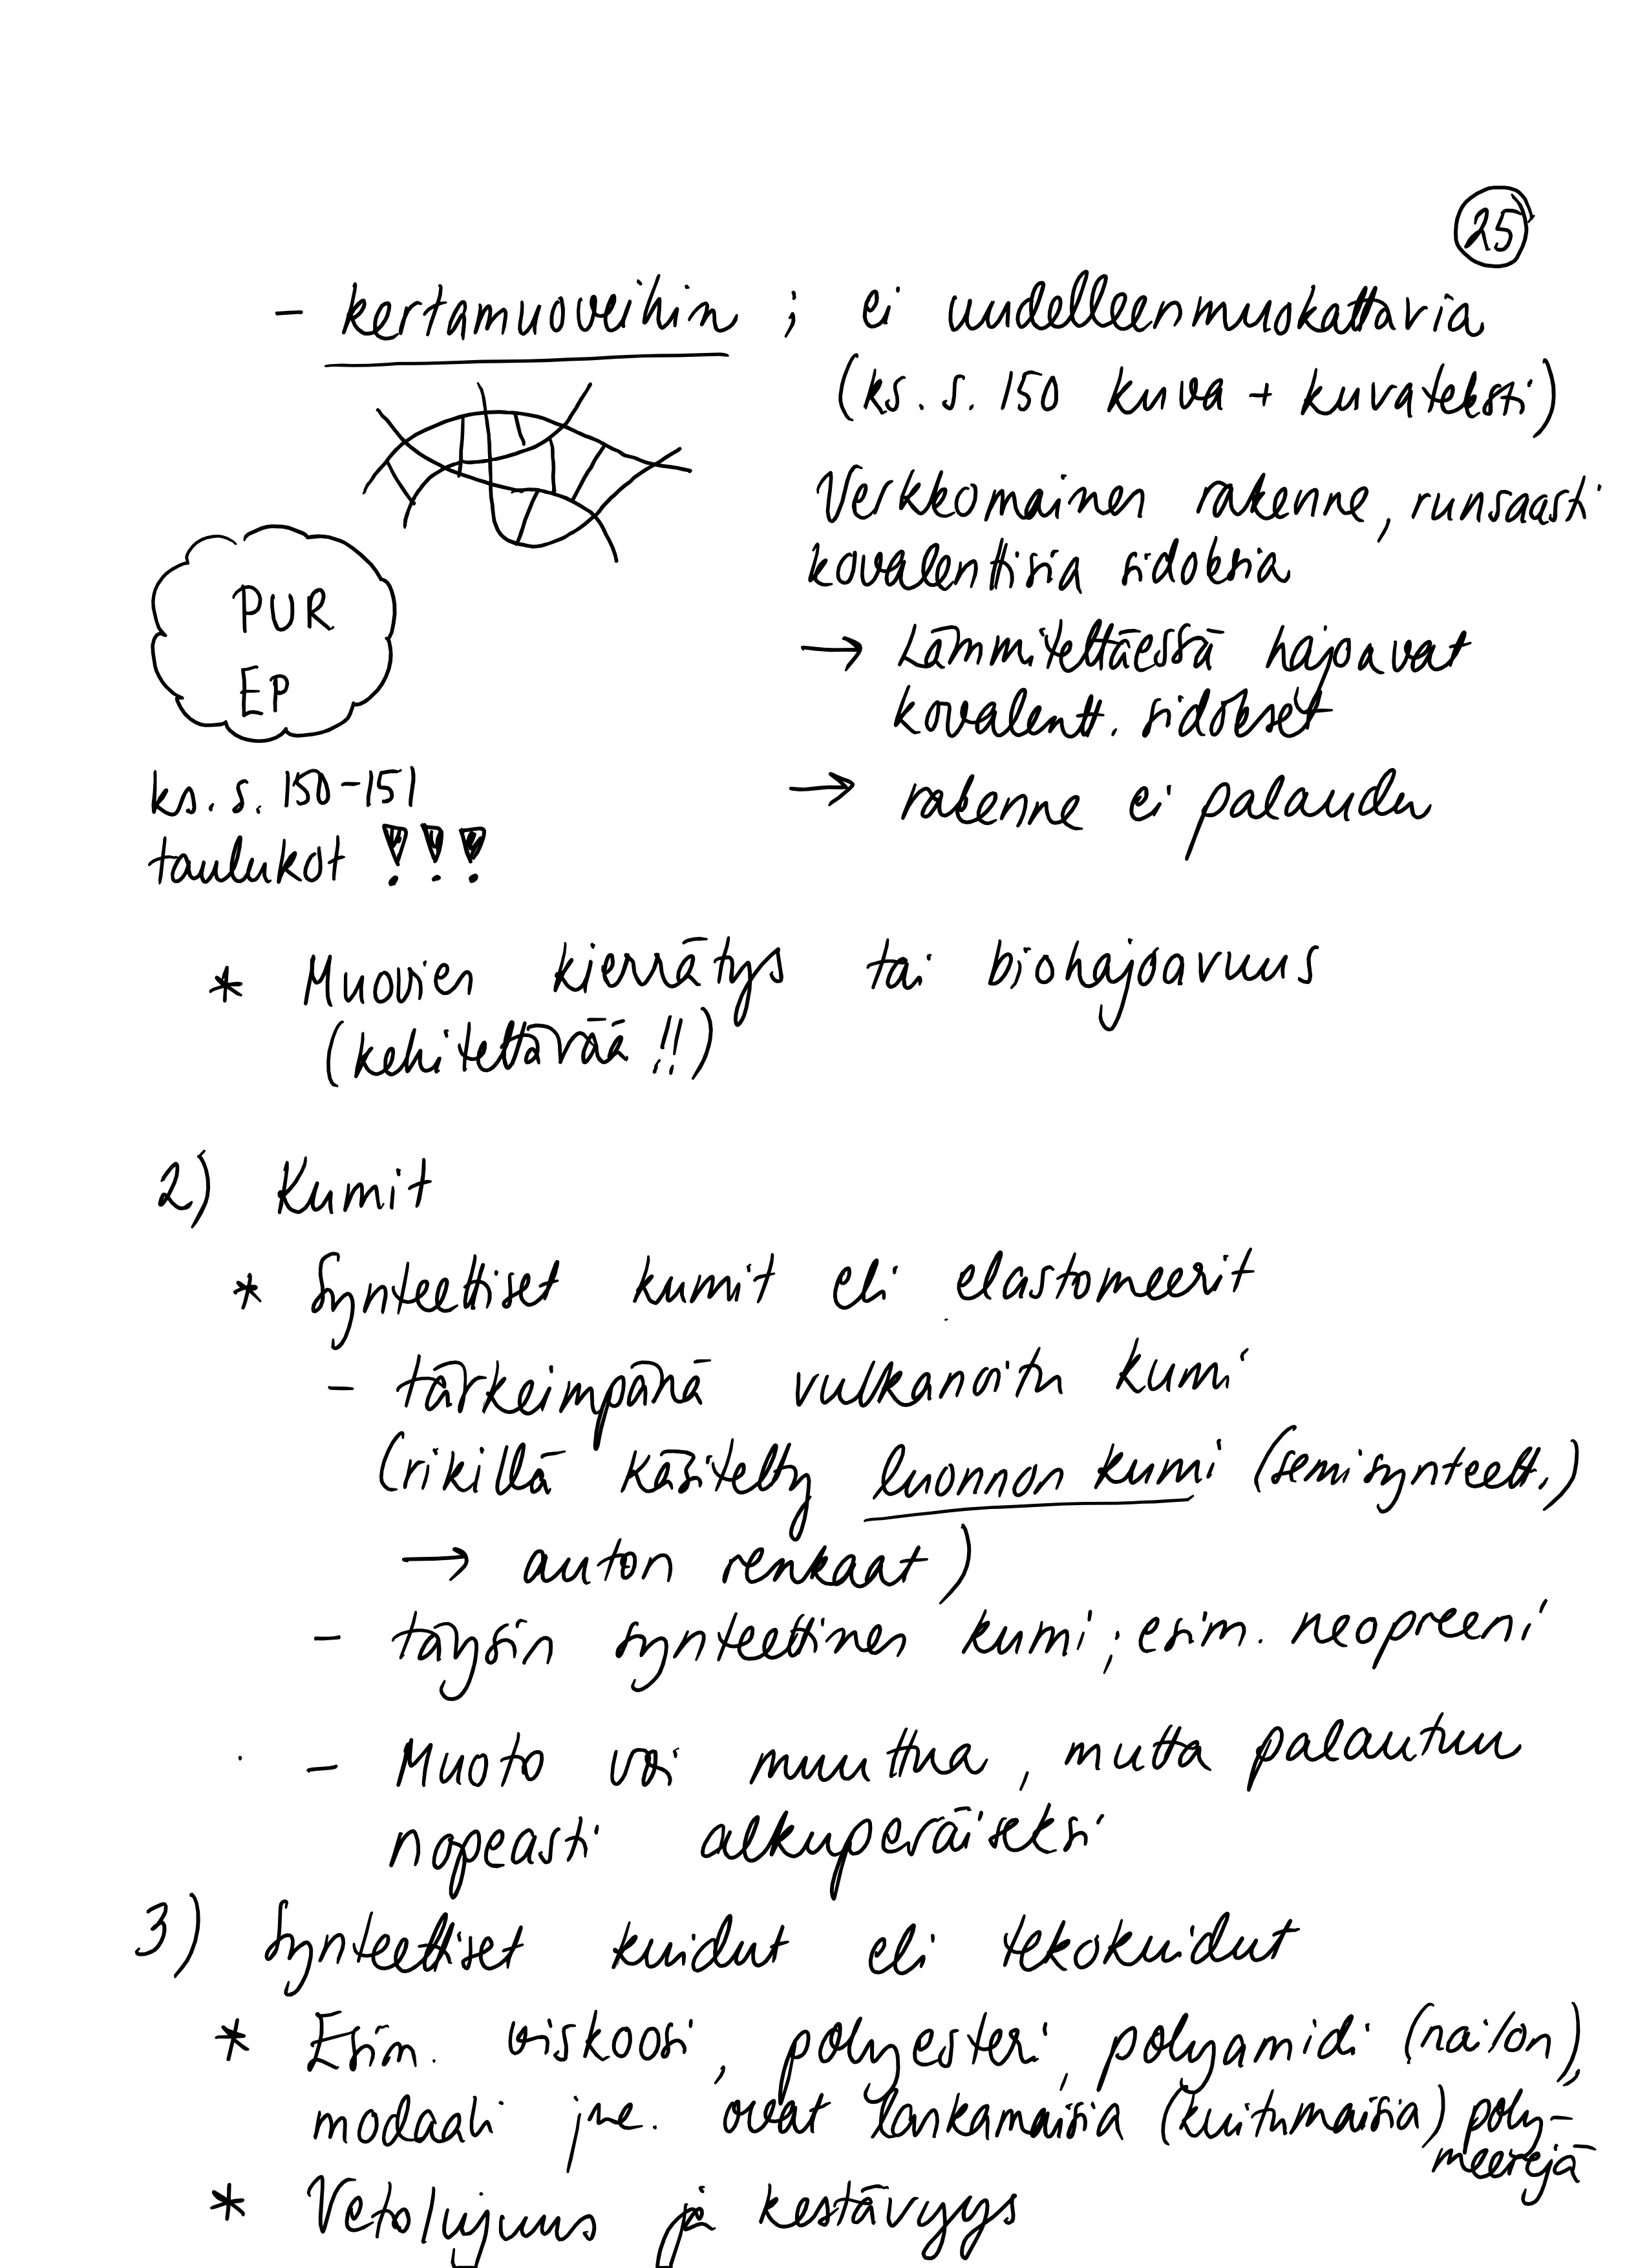 25
- kertamuoveihin ; ei uudelleenmuokattavia
(ks. s. 150 kuva + kuvateksti)
Verkkomainen rakenne, runsaasti
kovalenttisia sidoksia
→ Lämmiteltäessä hajoavat
kovalentt. sidokset
→ rakenne ei palaudu
PUR
EP
ks. s. 150-151
taulukot !!!
* Muovien kierrätys tai biohajoavuus
(kehitettävää !!)
2) Kumit
* Synteettiset kumit eli elastomeerit
- tärkeimpänä vulkanoitu kumi
(rikillä käsitelty luonnon kumi (semisynteett.)
→ auton renkaat)
- täysin synteettinen kumi ; esim. neopreeni
- Muoto voi muuttua, mutta palautuu
nopeasti alkuperäiseksi
3) Synteettiset kuidut eli tekokuidut
* Esim. viskoosi, polyesteri, polyamidi (nailon),
modaali jne. ovat lankamaisia (kuitumaisia) poly-
meerejä
* Vetolujuus ja kestävyys